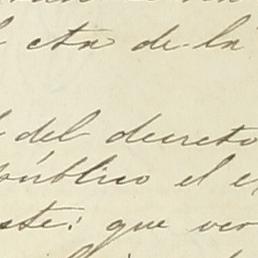 cta de la
del decreto
público el e
ste: que ver